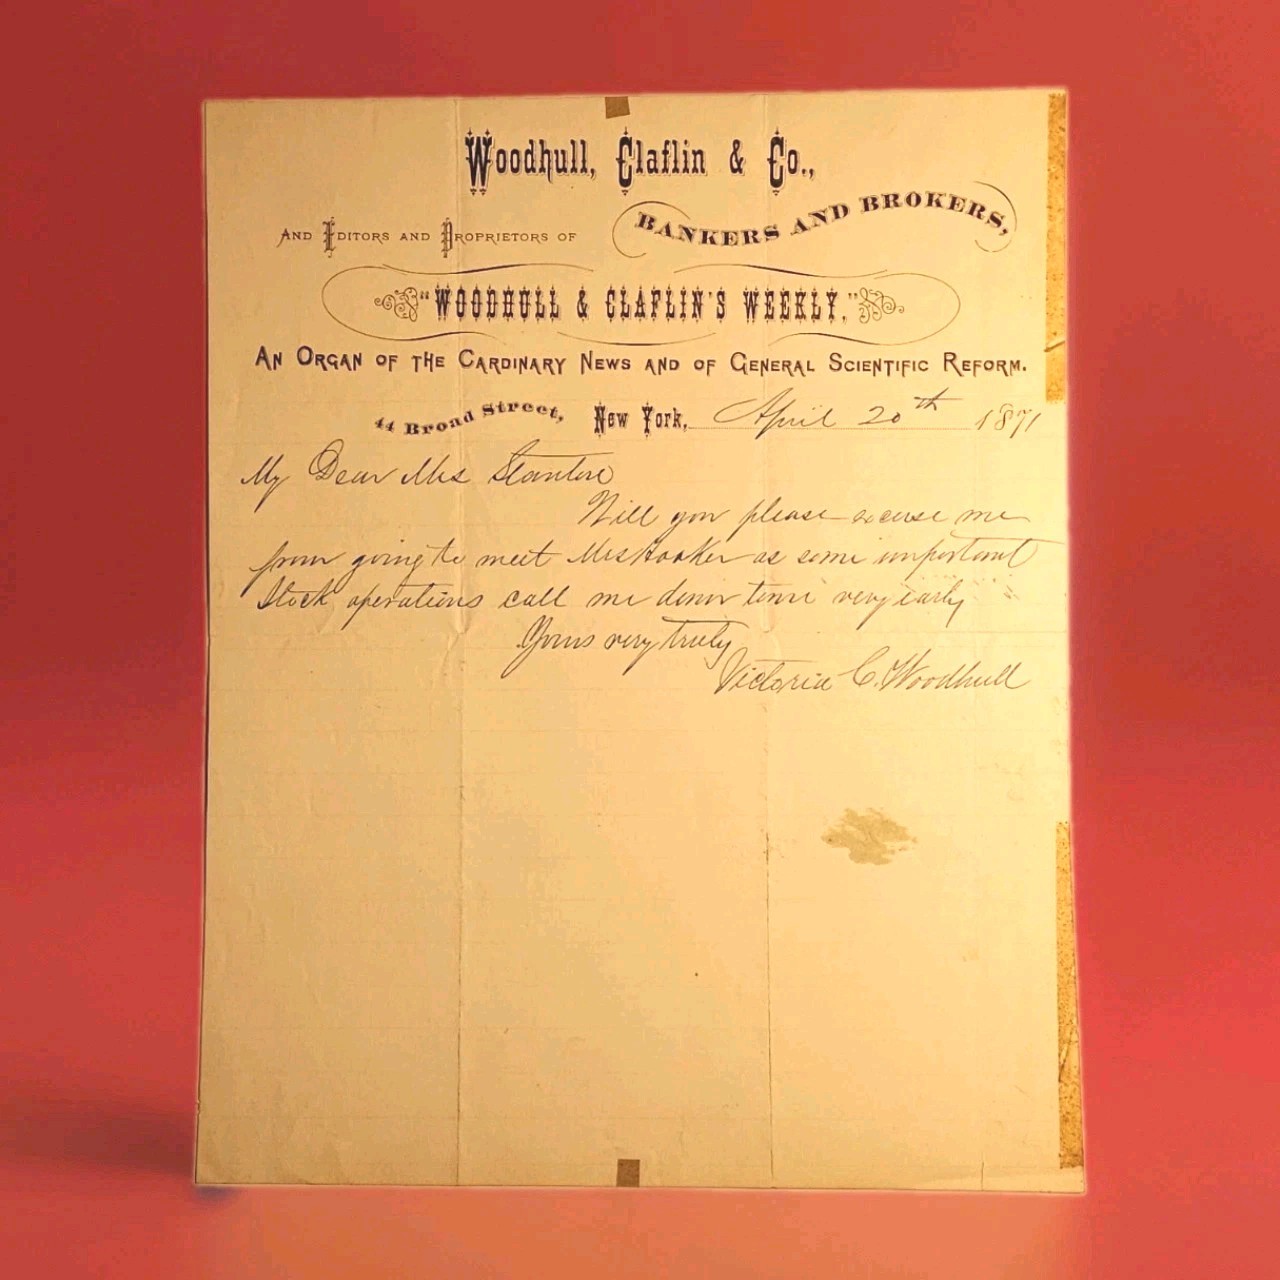 Woodhull, Claflin & Co.,
BANKERS AND BROKERS,
AND EDITORS AND PROPRIETORS OF
"WOODHULL & CLAFLIN'S WEEKLY,"
AN ORGAN OF THE CARDINARY NEWS AND OF GENERAL SCIENTIFIC REFORM.
44 Broad Street, New York, April 20th 1871
My Dear Mrs Stanton
Will you please excuse me
from going to meet Mrs Hooker as some important
Stock operations call me down town very early
Yours very truly
Victoria C. Woodhull